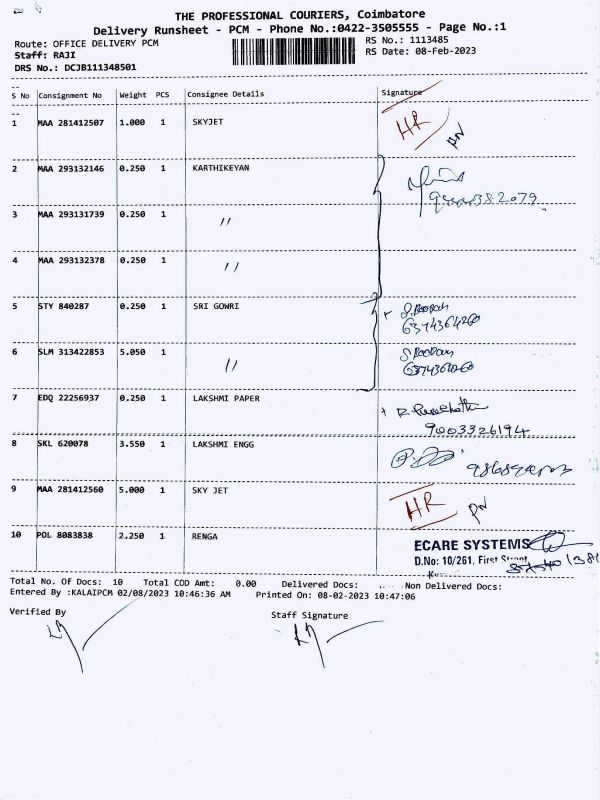 THE PROFESSIONAL COURIERS, Coimbatore
Delivery Runsheet - PCM - Phone No.:0422-3505555 - Page No.:1
Route: OFFICE DELIVERY PCM
RS No.: 1113485
Staff: RAJI
RS Date: 08-Feb-2023
DRS No.: DCJB111348501
S No Consignment No Weight PCS Consignee Details Signature
1 MAA 281412507 1.000 1 SKYJET HR
2 MAA 293132146 0.250 1 KARTHIKEYAN
3 MAA 293131739 0.250 1 "
4 MAA 293132378 0.250 1 "
5 STY 840287 0.250 1 SRI GOWRI
6 SLM 313422853 5.050 1 "
7 EDQ 22256937 0.250 1 LAKSHMI PAPER
9003326194
8 SKL 620078 3.550 1 LAKSHMI ENGG
9 MAA 281412560 5.000 1 SKY JET HR
10 POL 8083838 2.250 1 RENGA
ECARE SYSTEMS
D.No: 10/261, First Street
Total No. Of Docs: 10 Total COD Amt: 0.00 Delivered Docs: Non Delivered Docs:
Entered By :KALAIPCM 02/08/2023 10:46:36 AM Printed On: 08-02-2023 10:47:06
Verified By
Staff Signature